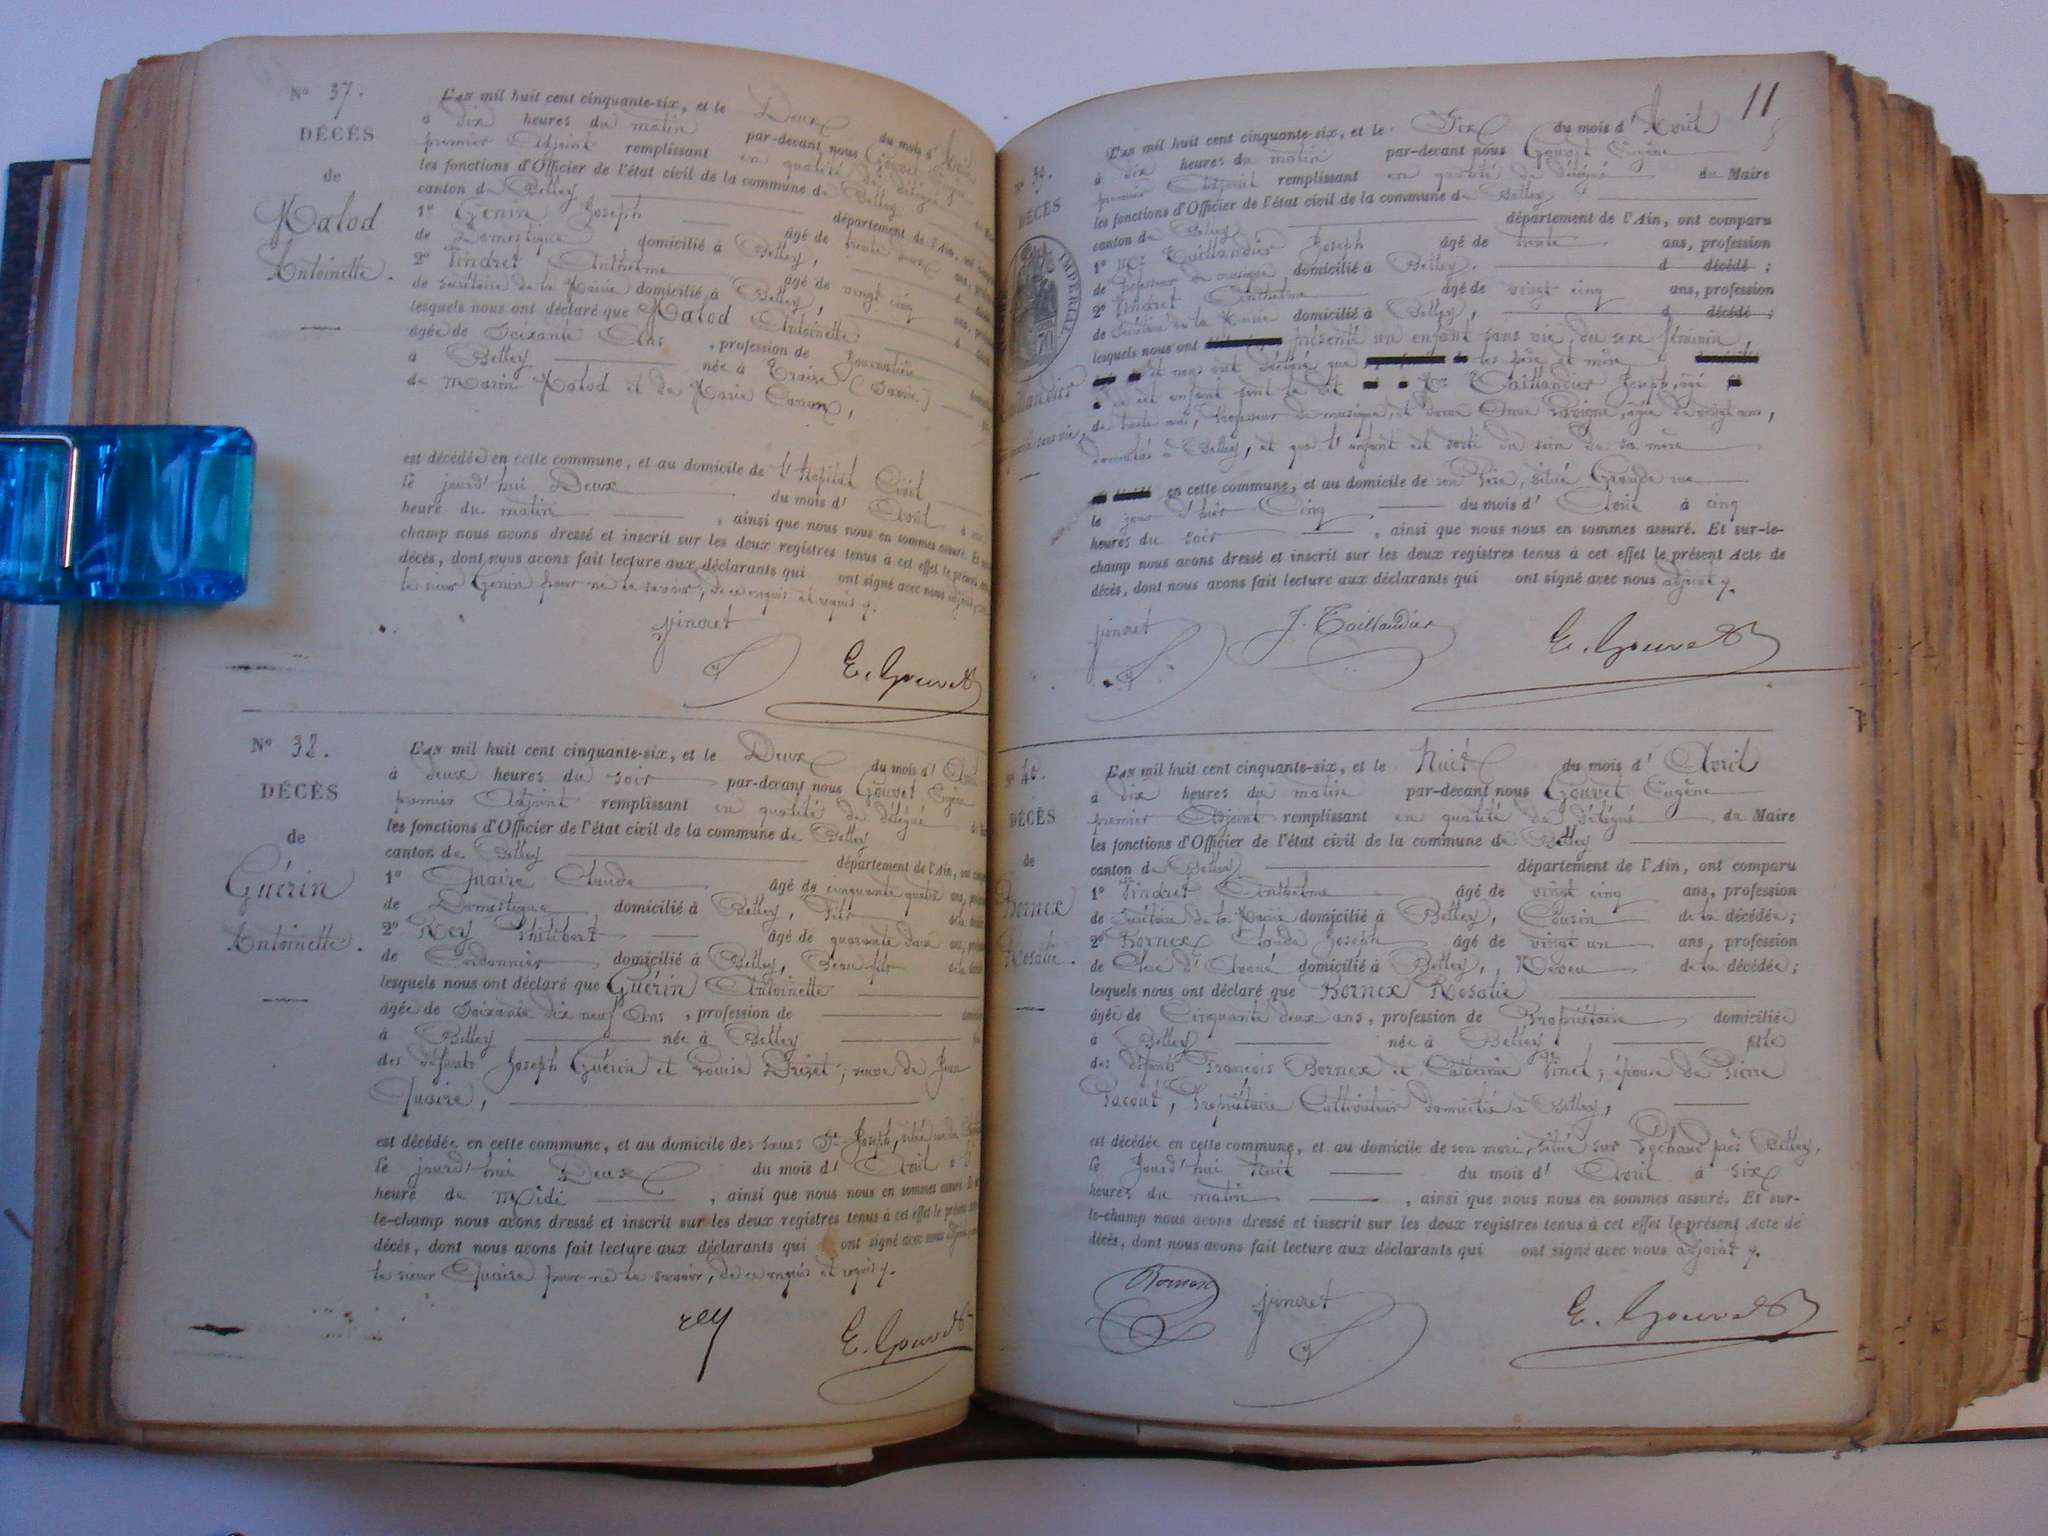 N° 37.
DÉCÈS
de
Malod
Antoinette.
L'AN mil huit cent cinquante-six, et le Deux du mois d'Avril
à dix heures du matin par-devant nous Gouvet Eugène
premier Adjoint remplissant en qualité de délégué
les fonctions d'Officier de l'état civil de la commune de Belley
canton de Belley département de l'Ain, ont
1° Genin Joseph âgé de trente deux ans,
de Domestique domicilié à Belley,
2° Vindret Anthelme âgé de vingt cinq ans,
de Secrétaire de la Mairie domicilié à Belley,
lesquels nous ont déclaré que Malod Antoinette
âgée de Soixante Ans, profession de Journalière
à Belley née à Traize (Savoie)
de Marin Malod et de Marie
est décédée en cette commune, et au domicile de l'Hôpital Civil
le jourd'hui Deux du mois d' Avril à
heure du matin, ainsi que nous nous en sommes assuré. Et
champ nous avons dressé et inscrit sur les deux registres tenus à cet effet le présent
décès, dont nous avons fait lecture aux déclarants qui ont signé avec nous adjoint,
le sieur Genin pour ne le savoir, de ce enquis et requis.
Vindret
E. Gouvet
N° 38.
DÉCÈS
de
Guérin
Antoinette.
L'AN mil huit cent cinquante-six, et le Deux du mois d' Avril
à deux heures du soir par-devant nous Gouvet Eugène
premier Adjoint remplissant en qualité de délégué
les fonctions d'Officier de l'état civil de la commune de Belley
canton de Belley département de l'Ain, ont
1° Quaire Claude âgé de cinquante quatre ans,
de Domestique domicilié à Belley, Fils de la
2° Rey Philibert âgé de quarante deux ans,
de Cordonnier domicilié à Belley, Beau fils de la
lesquels nous ont déclaré que Guérin Antoinette
âgée de Soixante dix neuf Ans, profession de
à Belley née à Belley
des défunts Joseph Guérin et Louise Drizet; veuve de Jean
Quaire,
est décédée en cette commune, et au domicile des sœurs St Joseph,
le jourd'hui Deux du mois d' Avril à
heure de Midi, ainsi que nous nous en sommes assuré. Et
le-champ nous avons dressé et inscrit sur les deux registres tenus à cet effet le présent
décès, dont nous avons fait lecture aux déclarants qui ont signé avec nous
le sieur Quaire pour ne le savoir, de ce enquis et requis.
rey
E. Gouvet
11
N° 39.
DÉCÈS
IMPÉRIAL
70
Taillandier
sans vie
L'AN mil huit cent cinquante-six, et le Six du mois d'Avril
à dix heures du matin par-devant nous Gouvet Eugène
premier Adjoint remplissant en qualité de délégué du Maire
les fonctions d'Officier de l'état civil de la commune de Belley
canton de Belley département de l'Ain, ont comparu
1° Mr Taillandier Joseph âgé de trente ans, profession
de Professeur de musique domicilié à Belley, d décédé;
2° Vindret Anthelme âgé de vingt cinq ans, profession
de Secrétaire de la Mairie domicilié à Belley, d décédé;
lesquels nous ont présenté un enfant sans vie, du sexe féminin,
et nous ont déclaré que les père et mère
de cet enfant sont le dit Mr Taillandier Joseph, âgé
de trente ans, Professeur de musique, et dame Anne Lavigne, âgée de vingt ans,
domiciliés à Belley, et que l'enfant est sorti du sein de sa mère
en cette commune, et au domicile de son Père, situé Grande rue
le jour d'hier Cinq du mois d' Avril à cinq
heures du soir, ainsi que nous nous en sommes assuré. Et sur-le-
champ nous avons dressé et inscrit sur les deux registres tenus à cet effet le présent Acte de
décès, dont nous avons fait lecture aux déclarants qui ont signé avec nous adjoint.
Vindret
J. Taillandier
E. Gouvet
N° 40.
DÉCÈS
de
Bornex
Rosalie.
L'AN mil huit cent cinquante-six, et le Huit du mois d' Avril
à dix heures du matin par-devant nous Gouvet Eugène
premier Adjoint remplissant en qualité de délégué du Maire
les fonctions d'Officier de l'état civil de la commune de Belley
canton de Belley département de l'Ain, ont comparu
1° Vindret Anthelme âgé de vingt cinq ans, profession
de Secrétaire de la Mairie domicilié à Belley, Cousin de la décédée;
2° Bornex Claude Joseph âgé de vingt un ans, profession
de Clerc d'Avoué domicilié à Belley, Neveu de la décédée;
lesquels nous ont déclaré que Bornex Rosalie
âgée de Cinquante deux ans, profession de Propriétaire domiciliée
à Belley née à Belley, fille
des défunts François Bornex et Catherine Vinet; épouse de Pierre
Pacout, Propriétaire Cultivateur domicilié à Belley,
est décédée en cette commune, et au domicile de son mari, situé sur Rochard près Belley,
le Jourd'hui huit du mois d' Avril à Six
heures du matin, ainsi que nous nous en sommes assuré. Et sur-
le-champ nous avons dressé et inscrit sur les deux registres tenus à cet effet le présent Acte de
décès, dont nous avons fait lecture aux déclarants qui ont signé avec nous adjoint.
Bornex
Vindret
E. Gouvet